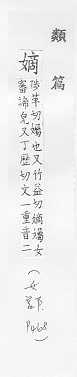 類篇
嫡
陟革切孎也又竹益切嫡孎女
審諦皃又丁歷切文一重音二
(女部 P468)